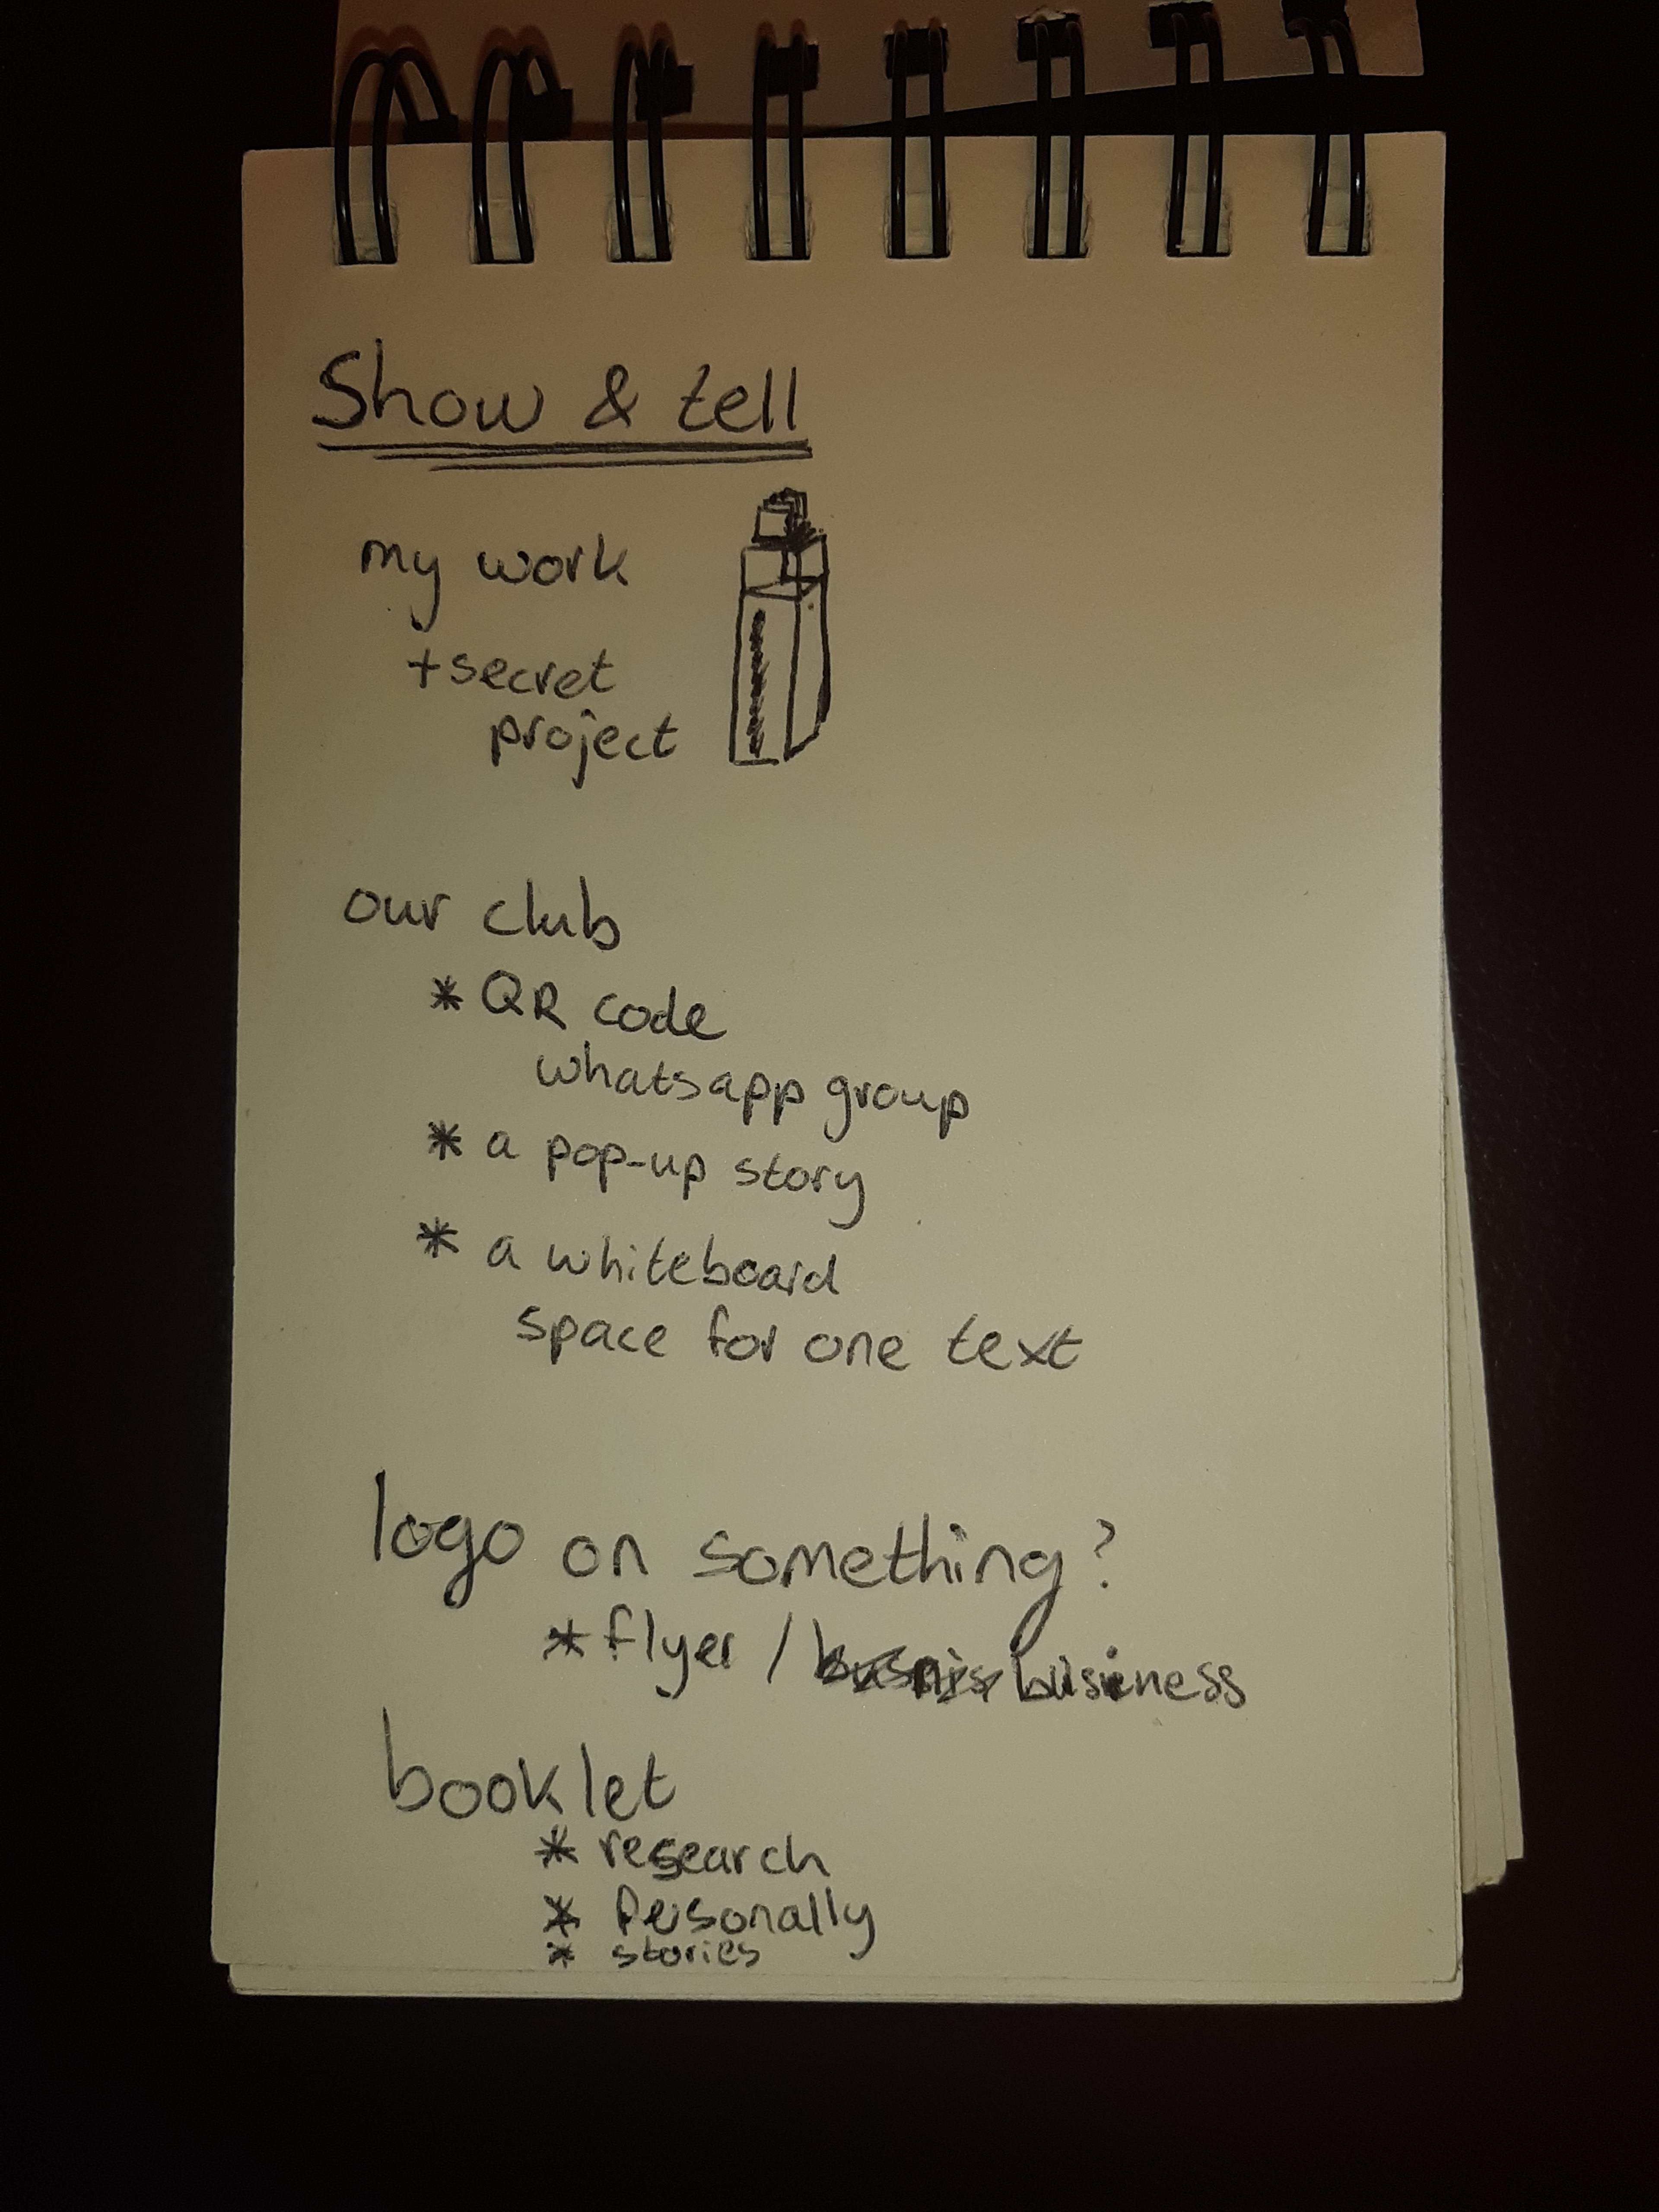 Show & tell
my work
+secret
project
our club
* QR code
whatsapp group
* a pop-up story
* a whiteboard
space for one text
logo on something?
* flyer / business
booklet
* research
* Personally
* stories